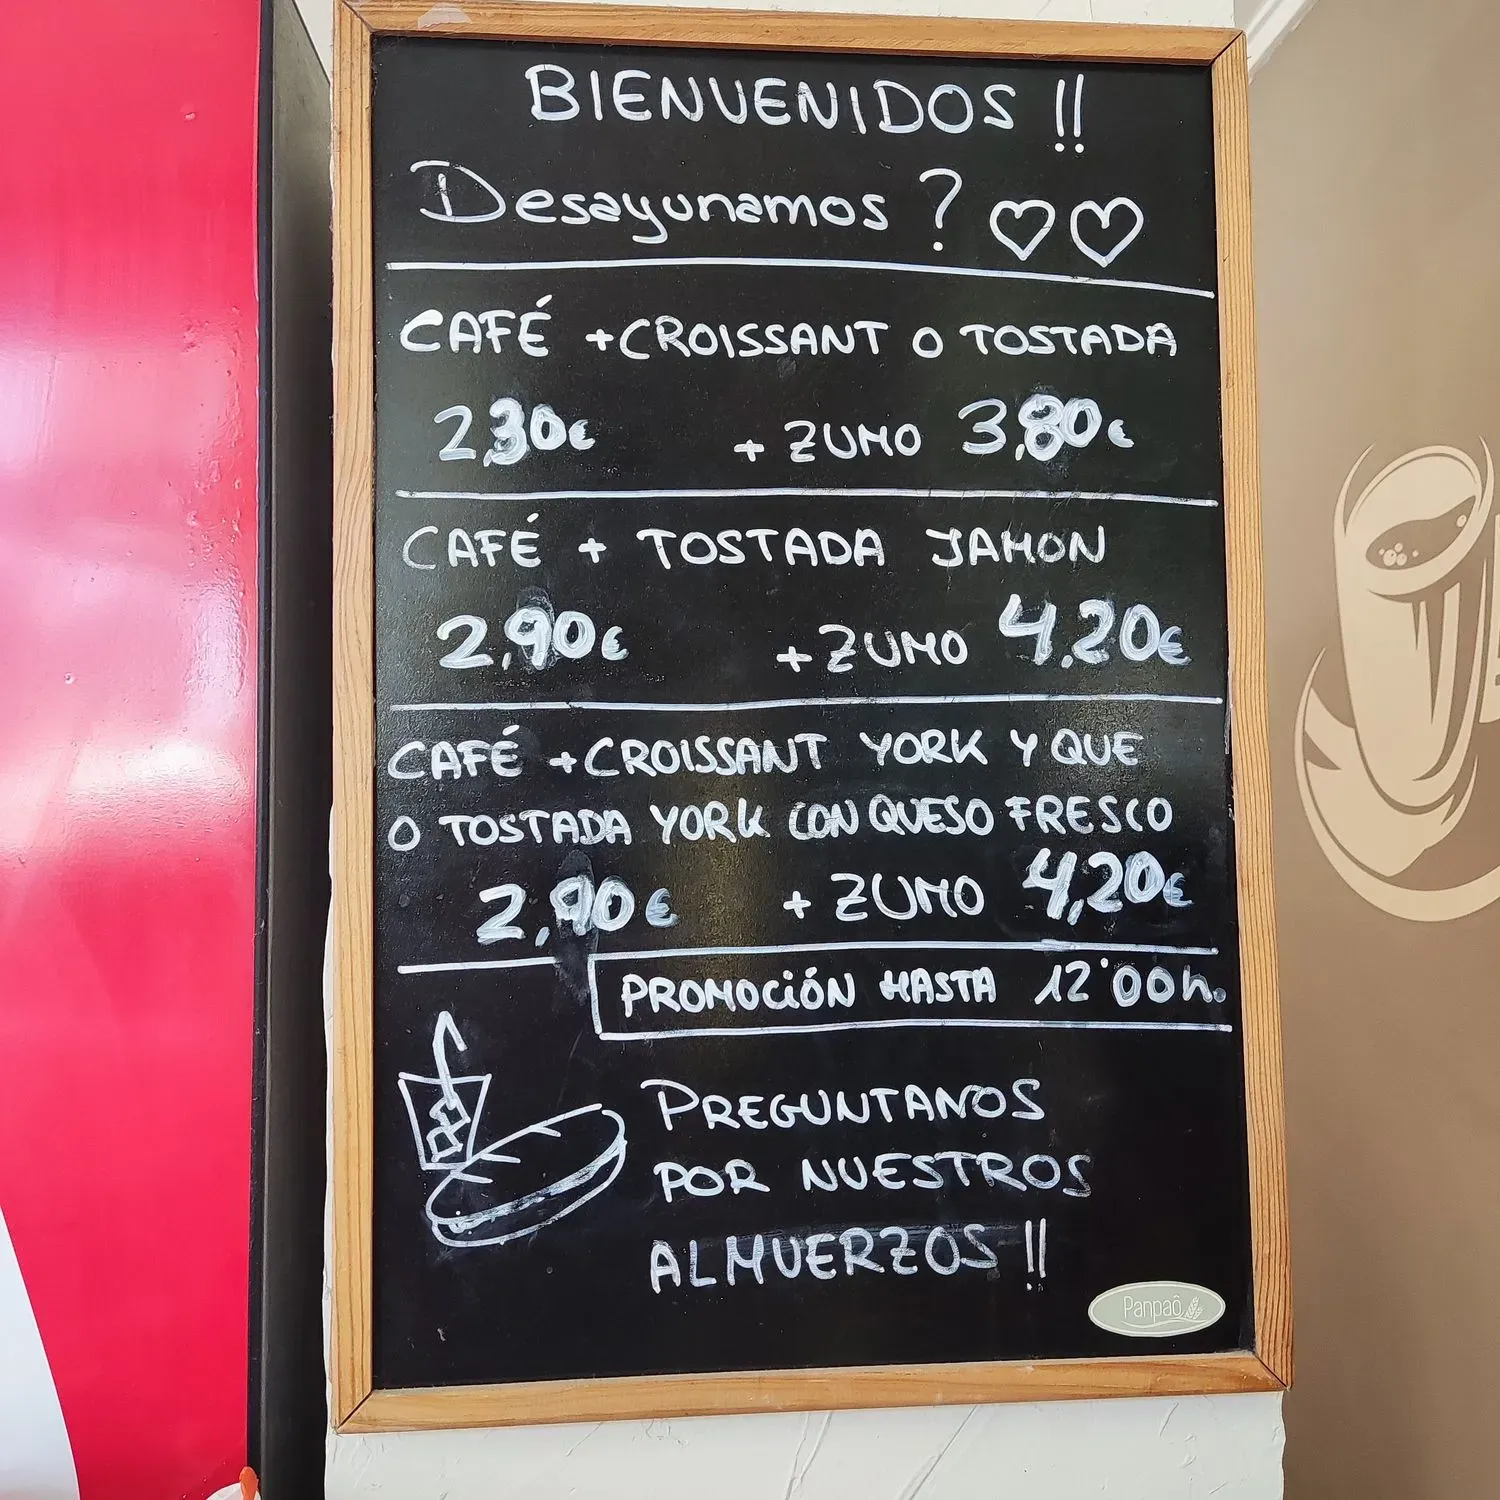 BIENVENIDOS !!
Desayunamos ? ♡♡
CAFÉ + CROISSANT O TOSTADA
2,30€ + ZUMO 3,80€
CAFÉ + TOSTADA JAMON
2,90€ + ZUMO 4,20€
CAFÉ + CROISSANT YORK Y QUE
O TOSTADA YORK CON QUESO FRESCO
2,90€ + ZUMO 4,20€
PROMOCIÓN HASTA 12'00h.
PREGUNTANOS
POR NUESTROS
ALMUERZOS !!
Panpaô